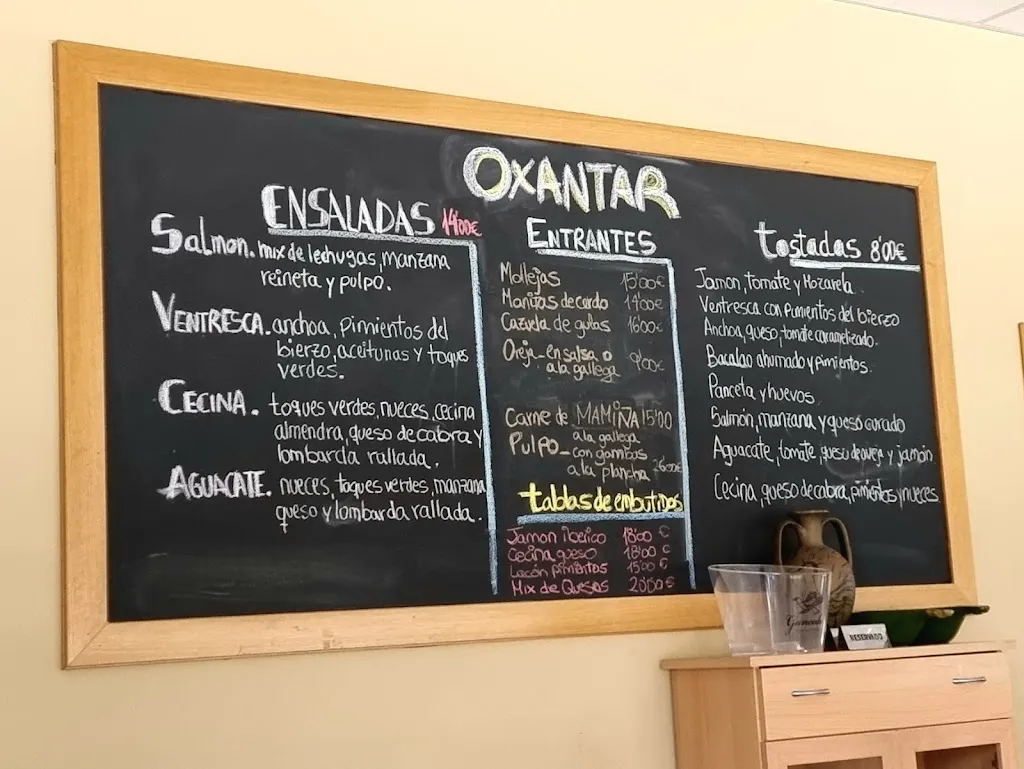 OXANTAR
ENSALADAS 14'00€
Salmon. mix de lechugas, manzana
reineta y pulpo.
VENTRESCA. anchoa, pimientos del
bierzo, aceitunas y toques
verdes.
CECINA. toques verdes, nueces, cecina
almendra, queso de cabra y
lombarda rallada.
AGUACATE. nueces, toques verdes, manzana
queso y lombarda rallada.
ENTRANTES
Mollejas 15'00€
Manitas de cerdo 14'00€
Cazuela de gulas 16'00€
Oreja - en salsa o
a la gallega 9'00€
Carne de MAMIÑA 15'00
PULPO - a la gallega
con gambas
a la plancha 26'00€
tablas de embutidos
Jamon iberico 18'00 €
Cecina queso 18'00 €
Lacón pimientos 15'00 €
Mix de Quesos 20'00 €
tostadas 8'00€
Jamon, tomate y Mozarela.
Ventresca con pimientos del bierzo
Anchoa, queso, tomate caramelizado.
Bacalao ahumado y pimientos.
Panceta y huevos
Salmón, manzana y queso curado
Aguacate, tomate, queso de oveja y jamón
Cecina, queso de cabra, pimientos y nueces.
RESERVADO